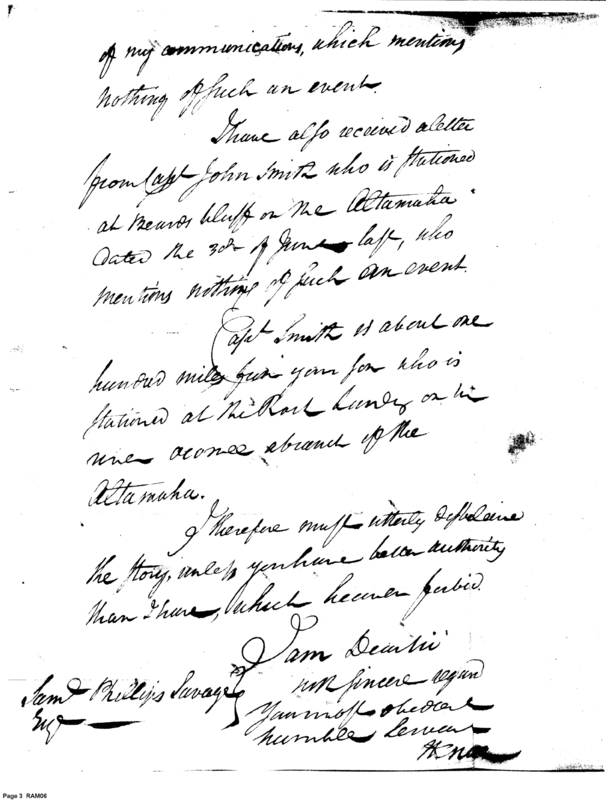 of my communications, which mentions
nothing of such an event.
I have also received a letter
from Capt John Smith who is stationed
at Beards bluff on the Altamaha
dated the 3d of June last, who
mentions nothing of such an event.
Capt Smith is about one
hundred miles from your son who is
stationed at the Rock landing on the
river oconee a branch of the
Altamaha.
I therefore must utterly disbelieve
the story, unless you have better authority
than I have, which heaven forbid.
I am Dear Sir
with sincere regard
Your most obedient
humble Servant
HKnox
Saml Phillips Savage
Esqr
Page 3 RAM06